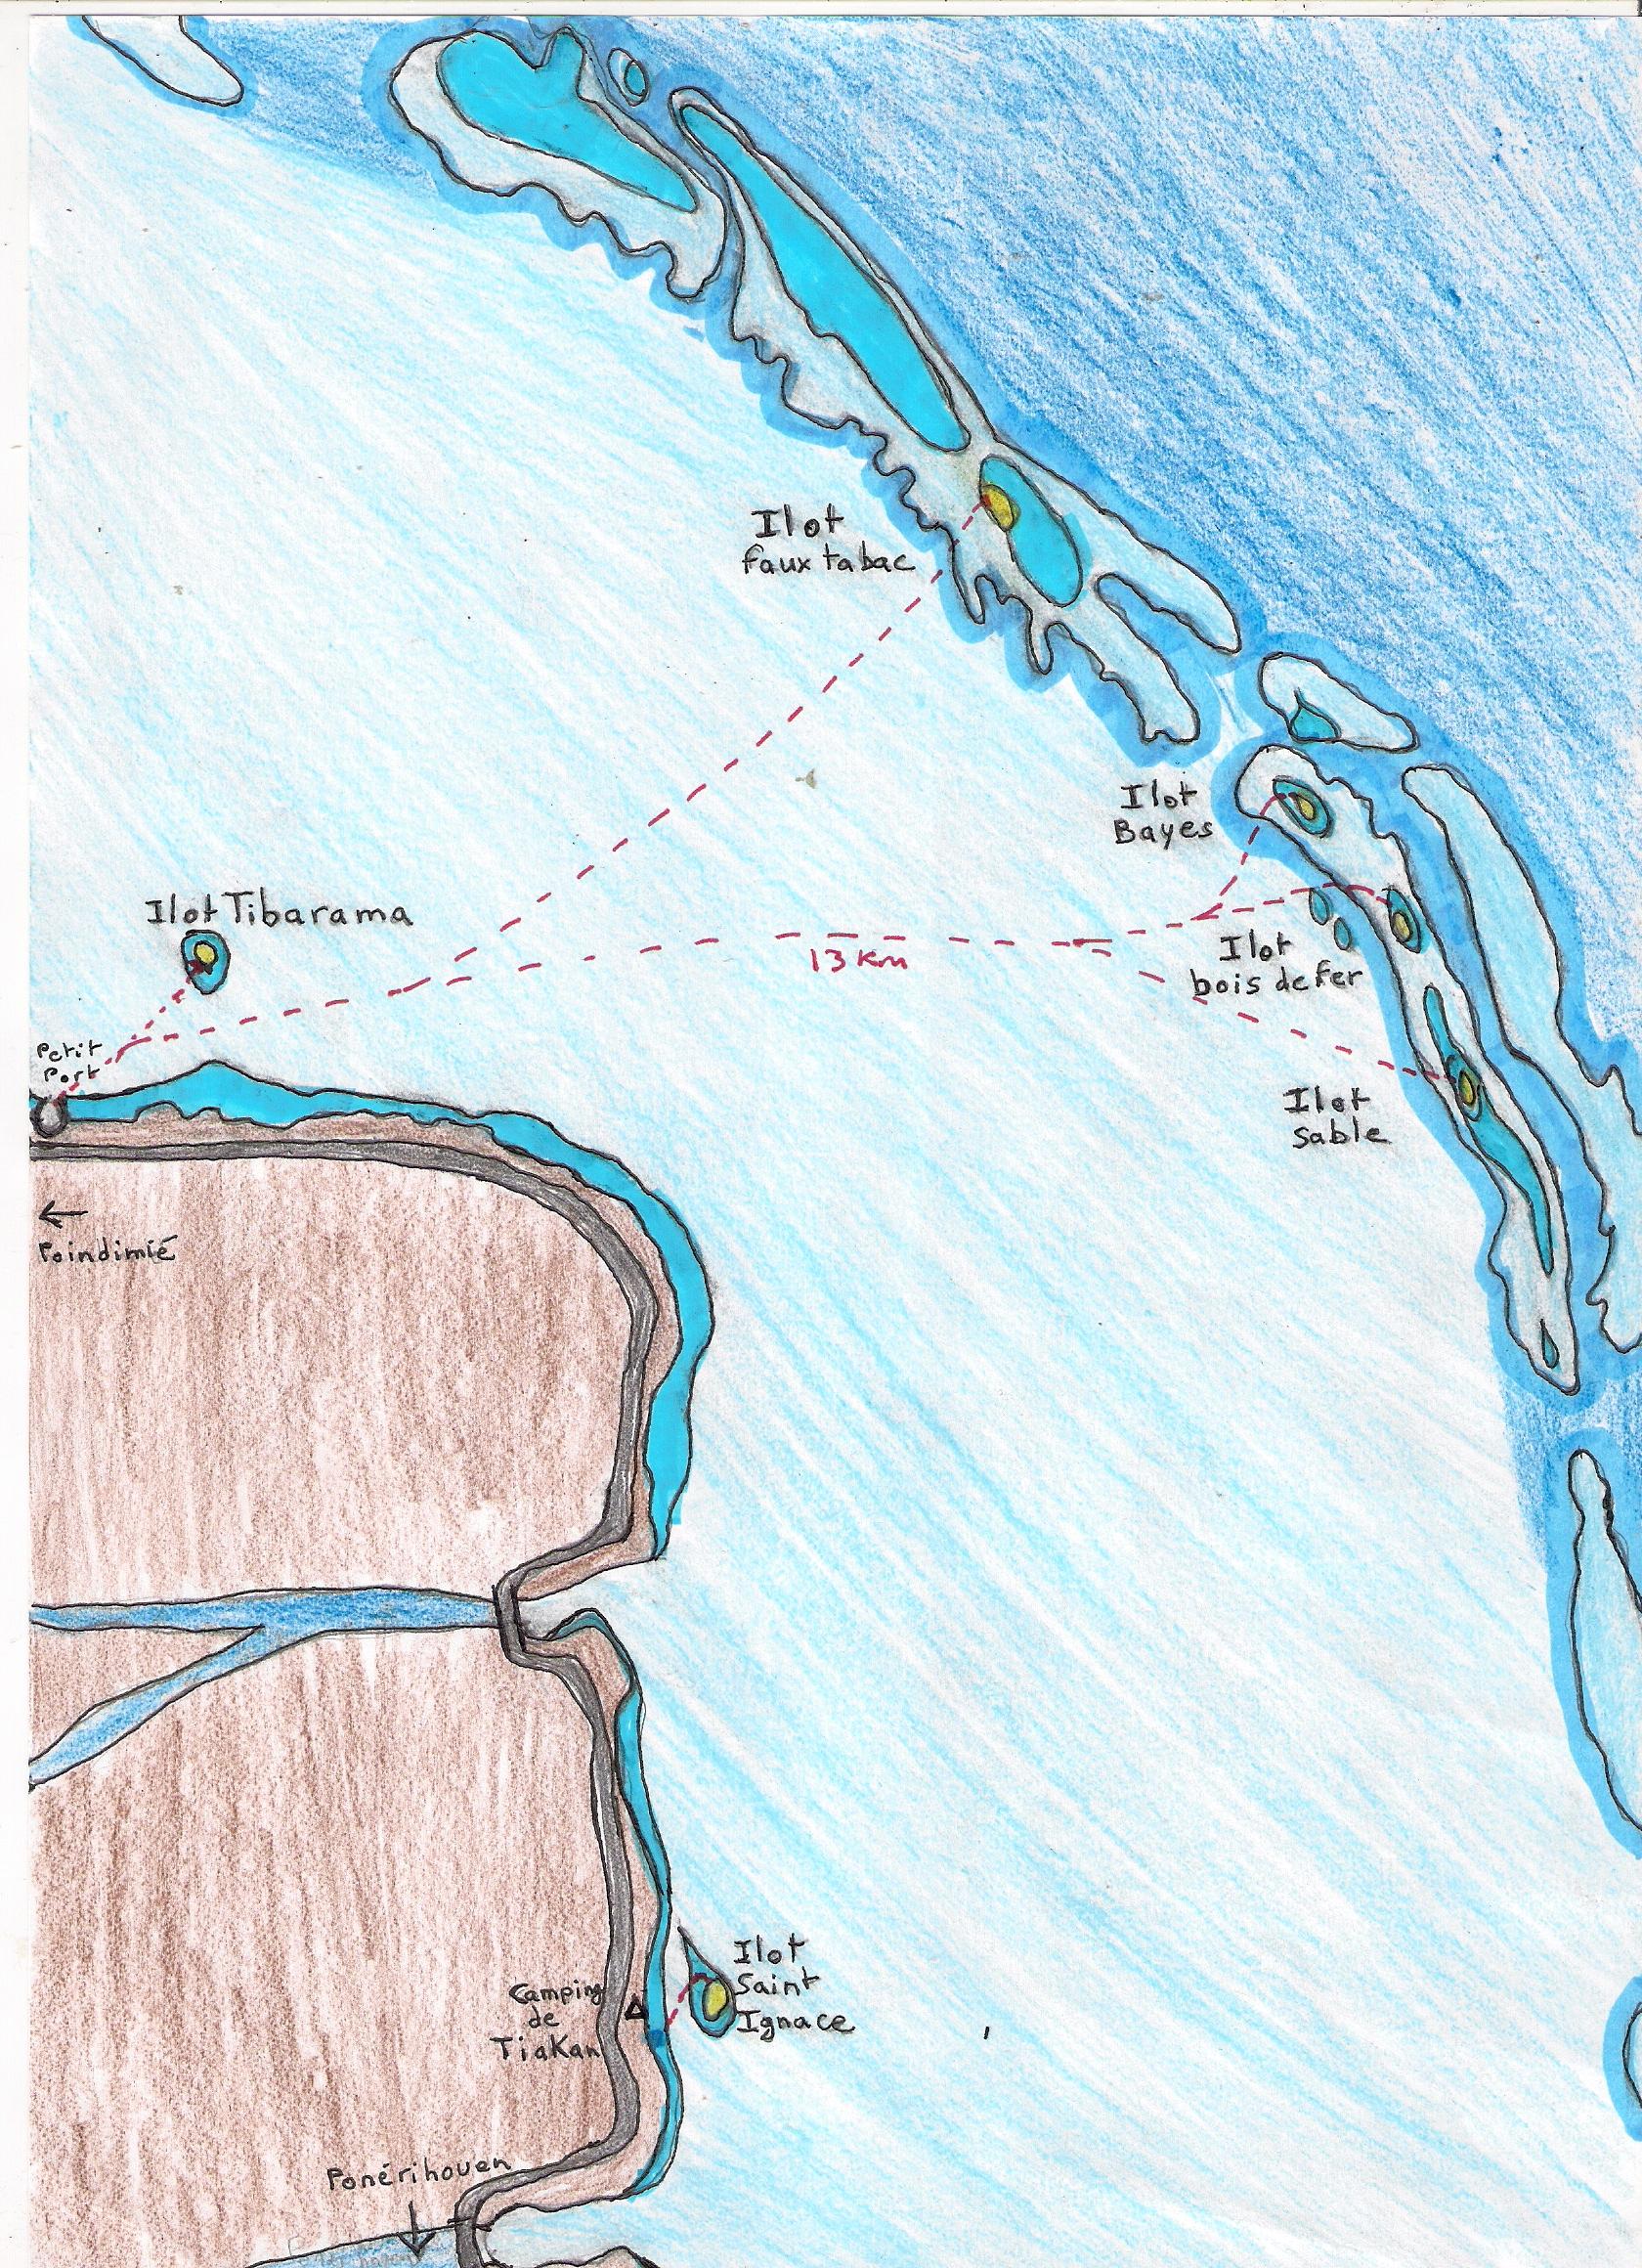 Ilot
faux tabac
Ilot
Bayes
Ilot Tibarama
13 Km
Ilot
bois de fer
Petit
Port
Ilot
sable
←
Poindimié
Ilot
Saint
Ignace
Camping
de
Tiakan
Ponérihouen